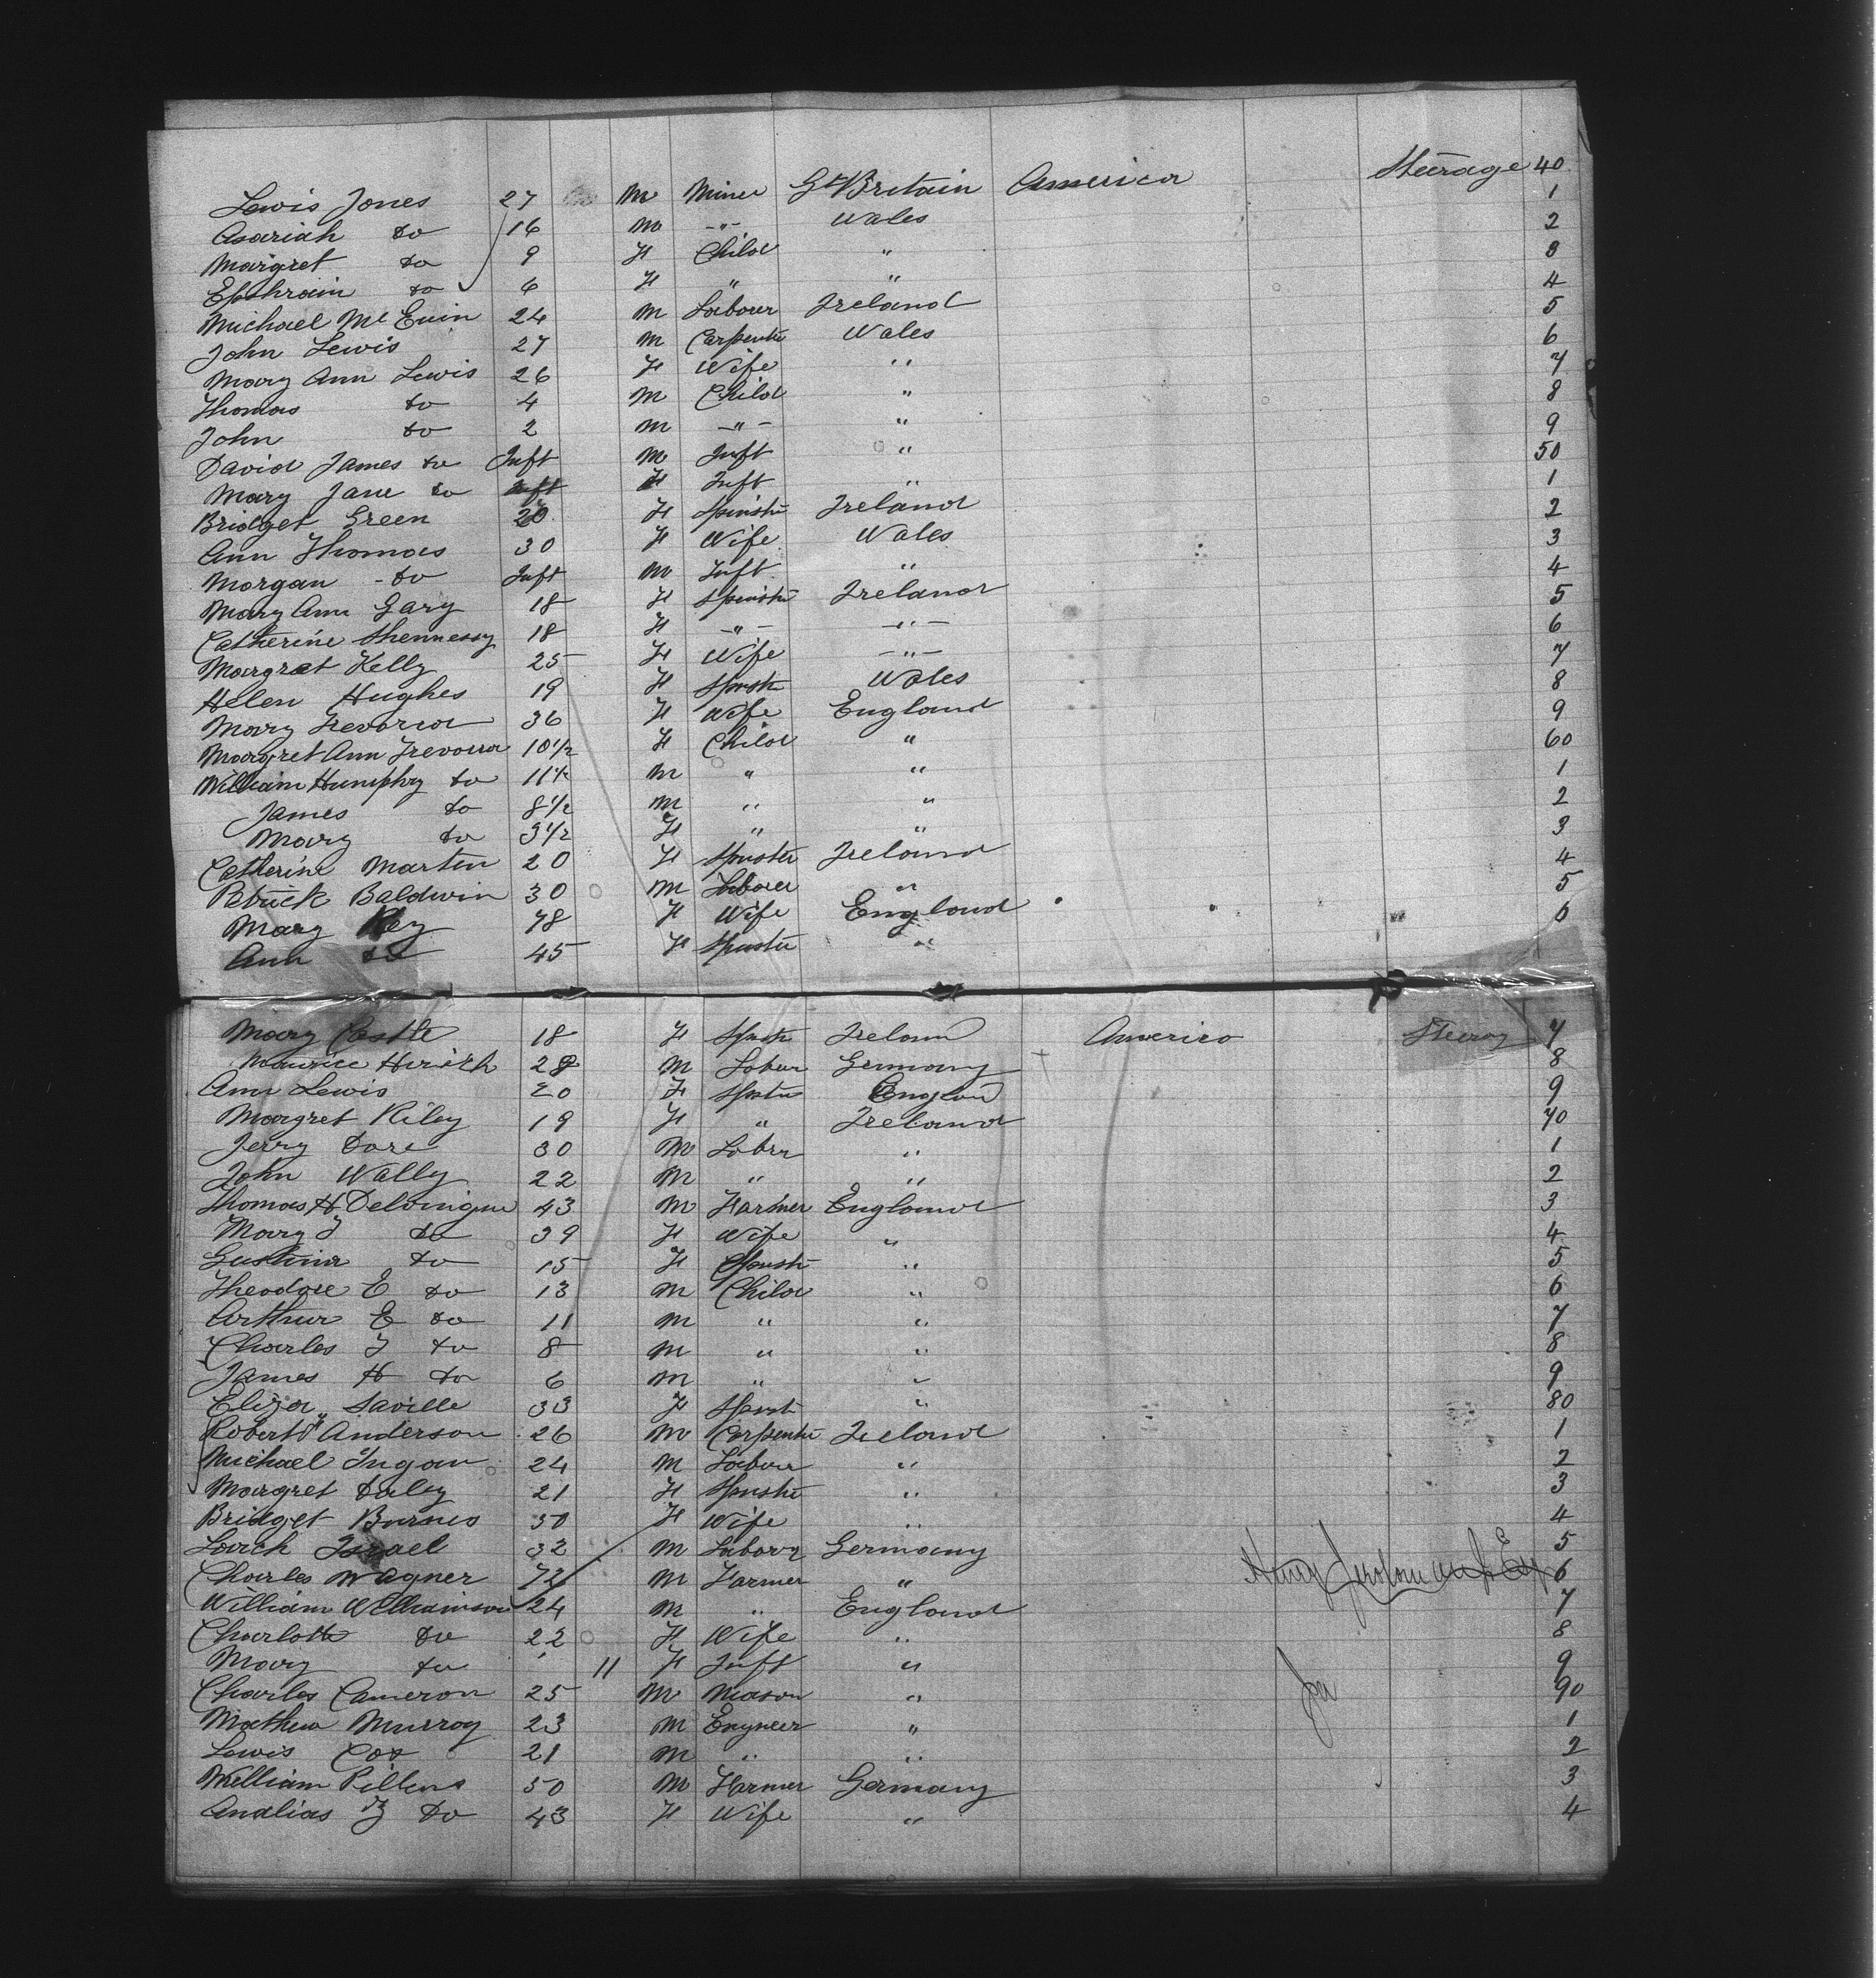 Lewis Jones 27 M Miner Gt Britain America Steerage 40
Asariah do 16 M -"- Wales 1
Margret do 9 F Child " 2
Ephraim do 6 F " " 3
Michael Mc Euin 24 M Labourer Ireland 4
John Lewis 27 M Carpenter Wales 5
Mary Ann Lewis 26 F Wife " 6
Thomas do 4 M Child " 7
John do 2 M -"- " 8
David James do Inft M Inft " 9
Mary Jane do Inft F Inft " 50
Bridget Green 20 F Spinster Ireland 1
Ann Thomas 30 F Wife Wales 2
Morgan - do Inft M Inft " 3
Mary Ann Gary 18 F Spinster Ireland 4
Catherine Shennessy 18 F -"- -"- 5
Margret Kelly 25 F Wife -"- 6
Helen Hughes 19 F Spinstr Wales 7
Mary Trevorra 36 F Wife England 8
Margret Ann Trevorra 10½ F Child " 9
William Humphry do 11½ M " " 60
James do 8½ M " " 1
Mary do 3½ F " " 2
Catherine Martin 20 F Spinster Ireland 3
Patrick Baldwin 30 M Laborer " 4
Mary Key 78 F Wife England 5
Ann do 45 F Spinster " 6
Mary Castle 18 F Spinstr Ireland America Steerag 7
Maurice 28 M Labour Germany 8
Ann Lewis 20 F Spinster England 9
Margret Riley 19 F " Ireland 70
Jerry Dore 30 M Labrr " 1
John Wally 22 M " " 2
Thomas H 43 M Farmer England 3
Mary J do 39 F Wife " 4
do 15 F Spinstr " 5
Theodore E do 13 M Child " 6
Arthur E do 11 M " " 7
Charles J do 8 M " " 8
James H do 6 M " " 9
Eliza Saville 33 F Spinstr " 80
Robert Anderson 26 M Carpenter Ireland 1
Michael Ingan 24 M Labour " 2
Margret Daley 21 F Spinster " 3
Bridget Burnes 30 F Wife " 4
Israel 32 M Labour Germany 5
Charles Wagner 72 M Farmer " Henry 6
William Williamson 24 M " England 7
Charlotte do 22 F Wife " 8
Mary do 11 F Inft " 9
Charles Cameron 25 M Mason " 90
Mathew Murray 23 M Engneer " 1
Lewis Cox 21 M " " 2
William Pillins 50 M Farmer Germany 3
do 43 F Wife " 4